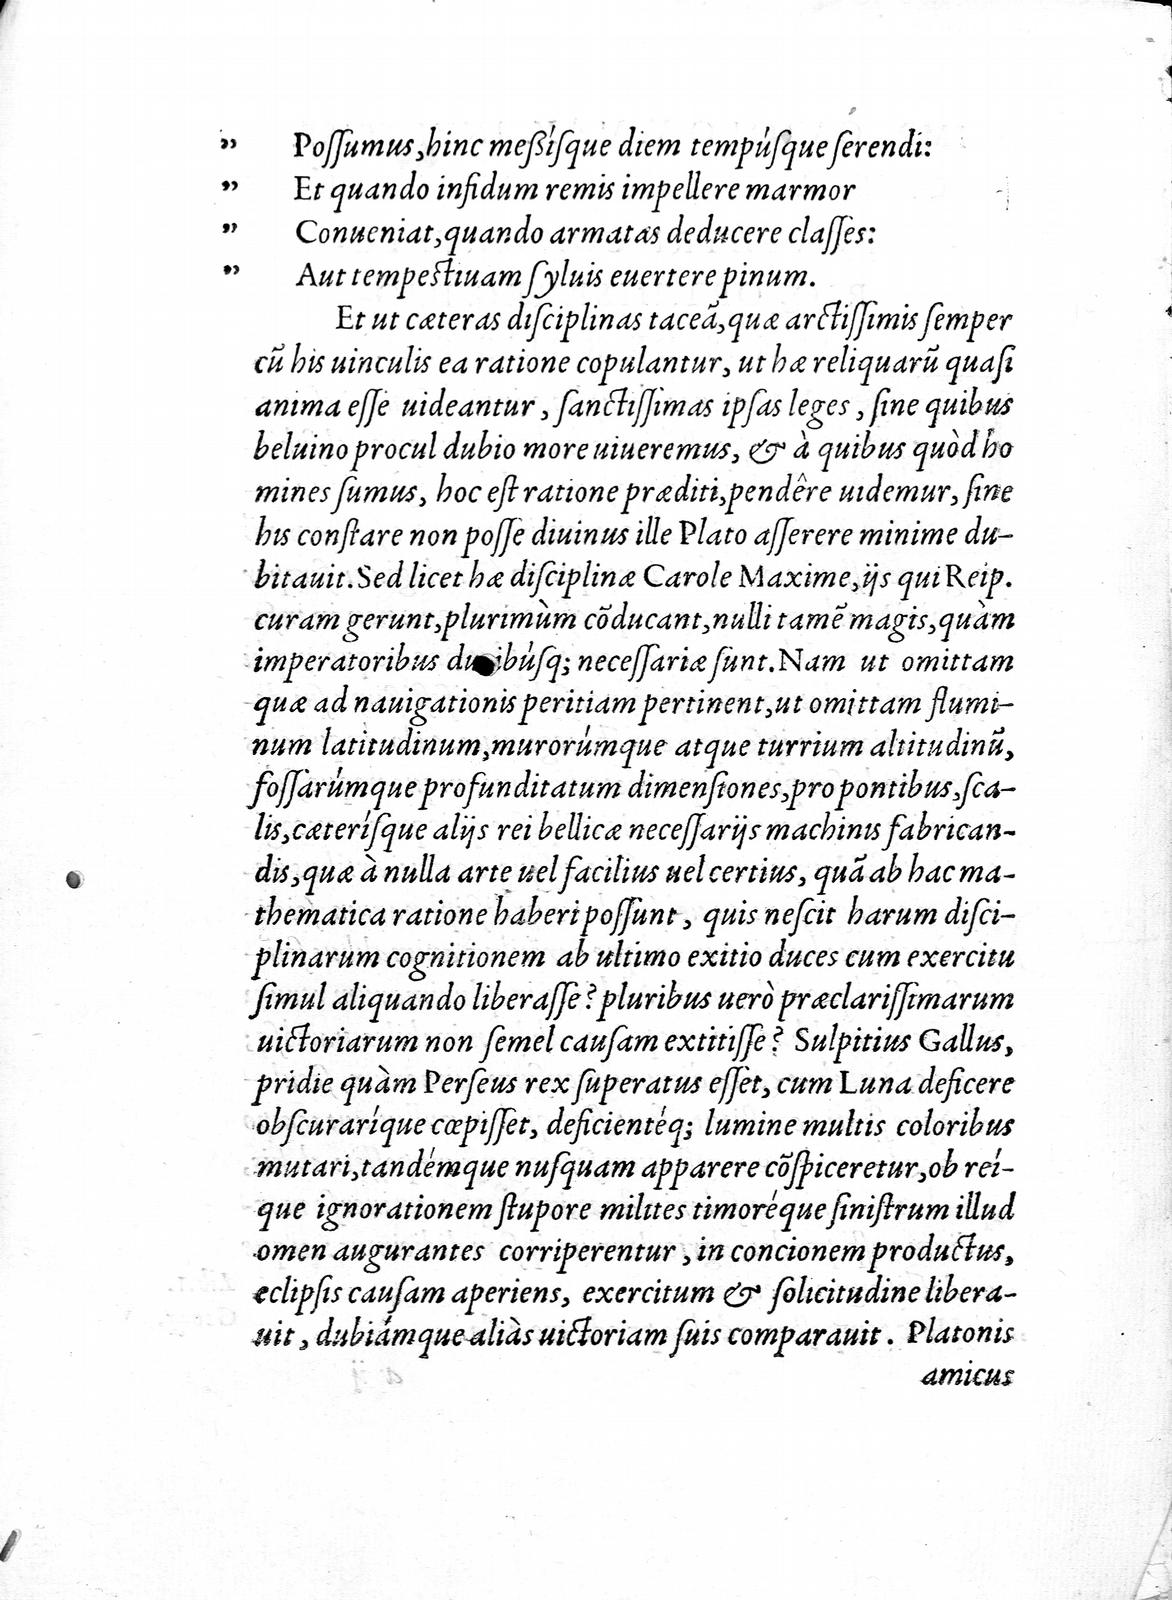 ” Poſſumus, hinc meßíſque diem tempúſque ſerendi:
” Et quando infidum remis impellere marmor
” Conueniat, quando armatas deducere claſſes:
” Aut tempeſtiuam ſyluis euertere pinum.
Et ut cæteras diſciplinas taceã, quæ arctiſſimis ſemper
cũ his uinculis ea ratione copulantur, ut hæ reliquarũ quaſi
anima eſſe uideantur, ſanctiſſimas ipſas leges, ſine quibus
beluino procul dubio more uiueremus, & à quibus quòd ho
mines ſumus, hoc eſt ratione præditi, pendêre uidemur, ſine
his conſtare non poſſe diuinus ille Plato aſſerere minime du-
bitauit. Sed licet hæ diſciplinæ Carole Maxime, ijs qui Reip.
curam gerunt, plurimùm cõducant, nulli tamẽ magis, quàm
imperatoribus neceſſariæ ſunt. Nam ut omittam
quæ ad nauigationis peritiam pertinent, ut omittam flumi-
num latitudinum, murorúmque atque turrium altitudinũ,
foſſarúmque profunditatum dimenſiones, pro pontibus, ſca-
lis, cæteríſque alijs rei bellicæ neceſſarijs machinis fabrican-
dis, quæ à nulla arte uel facilius uel certius, quã ab hac ma-
thematica ratione haberi poſſunt, quis neſcit harum diſci-
plinarum cognitionem ab ultimo exitio duces cum exercitu
ſimul aliquando liberaſſe? pluribus uerò præclariſſimarum
uictoriarum non ſemel cauſam extitiſſe? Sulpitius Gallus,
pridie quàm Perſeus rex ſuperatus eſſet, cum Luna deficere
obſcuraríque cœpiſſet, deficientéq; lumine multis coloribus
mutari, tandémque nuſquam apparere cõſpiceretur, ob reí-
que ignorationem ſtupore milites timoréque ſiniſtrum illud
omen augurantes corriperentur, in concionem productus,
eclipſis cauſam aperiens, exercitum & ſolicitudine libera-
uit, dubiámque aliàs uictoriam ſuis comparauit. Platonis
amicus